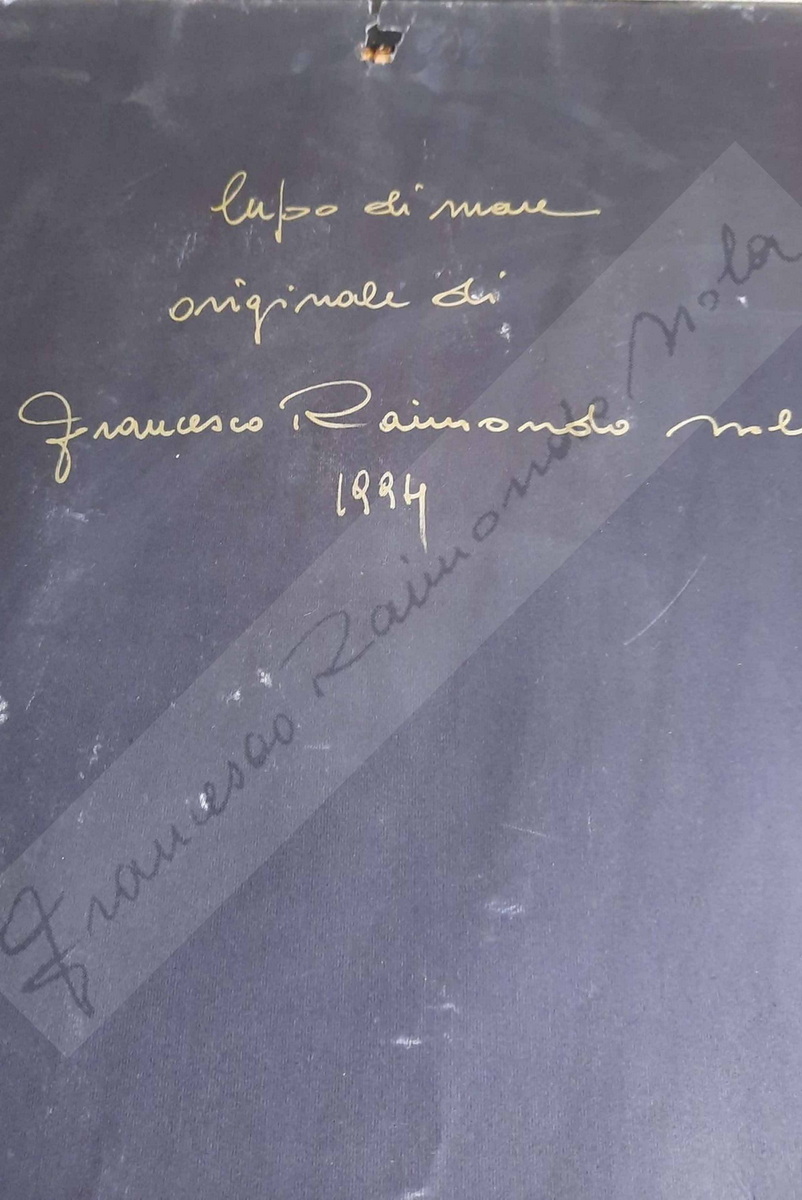 lupo di mare
originale di
Francesco Raimondo Nol
1994
Francesco Raimondo Nola